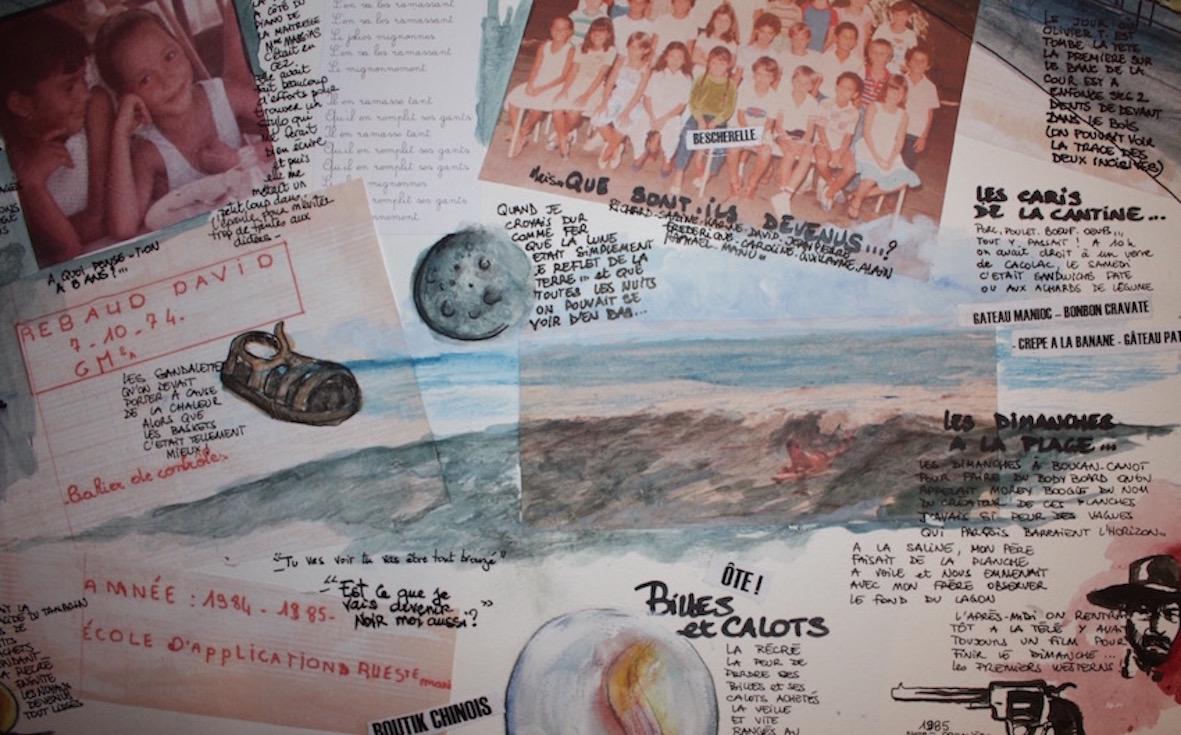 A CÔTÉ DU
PIANO DE
LA MAITRESSE
Mme MASSIAS
C'était en
CE2.
elle avait
fait beaucoup
d'efforts pour
trouver un
stylo qui
me ferait
bien écrire
et puis
elle me
mettait un
petit loup dans
trop de fautes aux
dictées..
L'en va les ramassant
L'en va les ramassant
Le jolies mignonnes
L'en va les ramassant
Le mignonnement.
Il en ramasse tant
Qu'il en remplit ses gants
Il en ramasse tant
Qu'il en remplit ses gants
mignonnes
remplit ses gants
nement.
A QUOI PENSE-T-ION
A 8 ANS ?...
REBAUD DAVID
7-10-74.
CM2A
LES SANDALETTES
QU'ON DEVAIT
PORTER À CAUSE
DE LA CHALEUR
ALORS QUE
LES BASKETS
C'ETAIT TELLEMENT
MIEUX !
Cahier de contrôles
BESCHERELLE
Mais QUE SONT-ILS DEVENUS...?
RICHARD-SABINE-KARINE-DAVID-JEAN PIERRE
FREDERIQUE-CAROLINE-GUILLAUME-ALAIN
RAPHAEL-MANU..
QUAND JE
CROYAIS DUR
COMME FER
QUE LA LUNE
ETAIT SIMPLEMENT
LE REFLET DE LA
TERRE... et QUE
TOUTES LES NUITS
ON POUVAIT SE
VOIR D'EN BAS...
LE JOUR OÙ
OLIVIER T. EST
TOMBÉ LA TETE
LA PREMIERE SUR
LE BANC DE LA
COUR EST A
ENFONCE SES 2
DENTS DE DEVANT
DANS LE BOIS
(ON POUVAIT VOIR
LA TRACE DES
DEUX INCISIVES)
LES CARIS
DE LA CANTINE...
PORC, POULET, BOEUF, OEUFS...
TOUT Y PASSAIT ! A 10h
on avait droit à un verre
de CACOLAC, LE SAMEDI
C'ETAIT SANDWICHS PATE
OU AUX ACHARDS DE LÉGUME
GATEAU MANIOC – BONBON CRAVATE
- CREPE A LA BANANE - GÂTEAU PAT
LES DIMANCHES
A LA PLAGE...
LES DIMANCHES À BOUCAN-CANOT
POUR FAIRE DU BODY BOARD QU'ON
APPELAIT MOREY BOOGIE DU NOM
DU CRÉATEUR DE CES PLANCHES
J'AVAIS SI PEUR DES VAGUES
QUI PARFOIS BARRAIENT L'HORIZON...
A LA SALINE, MON PÈRE
FAISAIT DE LA PLANCHE
A VOILE et NOUS EMMENAIT
AVEC MON FRÈRE OBSERVER
LE FOND DU LAGON
L'APRÈS-MIDI ON RENTRAIT
TÔT A LA TÉLÉ Y AVAIT
TOUJOURS UN FILM POUR
FINIR LE DIMANCHE...
LES PREMIERS WESTERNS
1985
"Tu vas voir tu vas être tout bronzé"
"Est ce que je
vais devenir
Noir moi aussi ?"
ANNÉE : 1984-1985-
ÉCOLE D'APPLICATION D RUESTE
ÔTE !
BILLES
et CALOTS
LA RÉCRÉ
LA PEUR DE
PERDRE SES
BILLES et SES
CALOTS ACHETÉS
LA VEILLE
ET VITE
RANGÉS AU
BOUTIK CHINOIS
LA RECRE
ENSUITE
LES NOYAUX
DEVENUS
TOUT LISSES